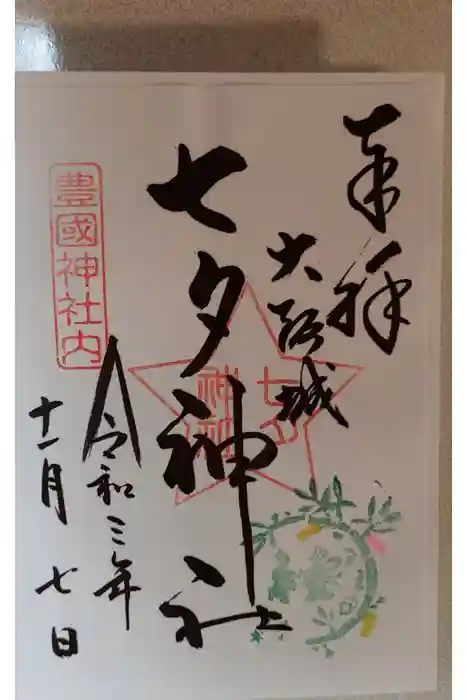 奉拝
大阪城
七夕神社
七夕神社
豊國神社内
令和三年
十一月七日